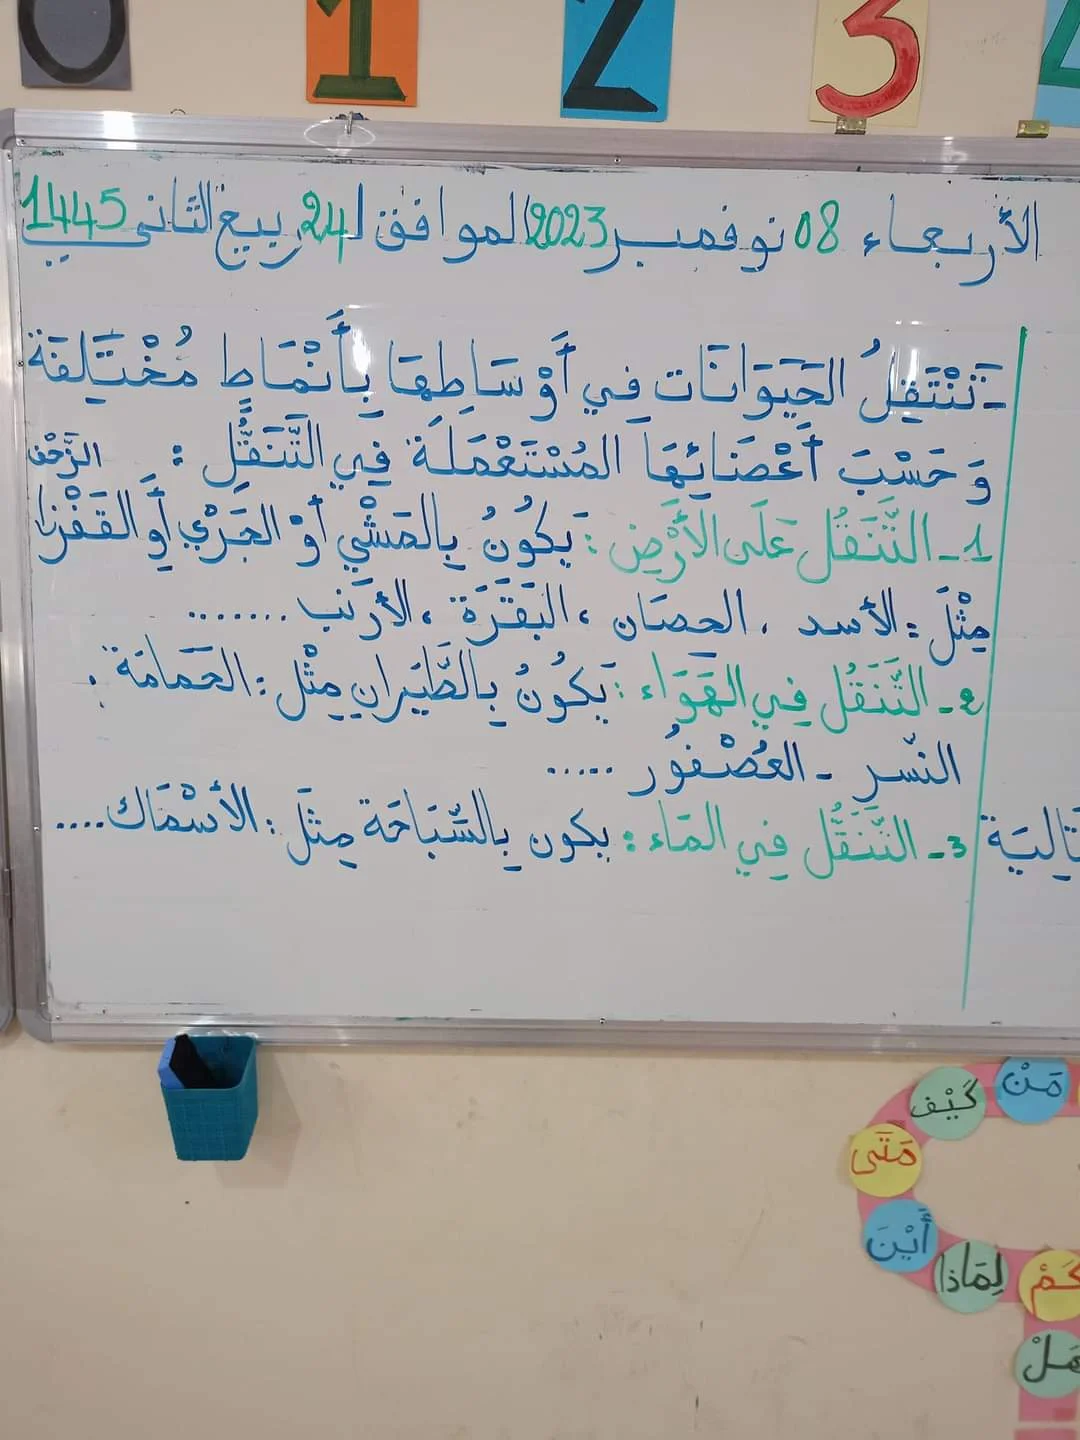 0 1 2 3
الأربعاء 08 نوفمبر 2023 الموافق لـ 24 ربيع الثاني 1445
- تَنْتَقِلُ الحَيَوَانَات فِي أَوْسَاطِهَا بِأَنْمَاطٍ مُخْتَلِفَة
وَ حَسْبَ أَعْضَائِهَا المُسْتَعْمَلَة فِي التَّنَقُّلِ : الزَّحْف
1- التَّنَقُل عَلَى الأَرْضِ : يَكُونُ بِالمَشْيِ أَوْ الجَرْيِ أَوِ القَفْزِ
مِثْلَ : الأسد ، الحِصَان ، البَقَرَة ، الأرَنب .......
2- التَّنَقُل فِي الهَوَاء : يَكُونُ بِالطَّيَرانِ مِثْل : الحَمَامَة .
النسْر - العُصْفُور .....
3- التَّنَقُّل فِي المَاء : يكون بِالسِّبَاحَة مِثَل : الأسْمَاك....
مَنْ
كَيْف
مَتَى
أَيْنَ
لِمَاذا
كَمْ
هَلْ